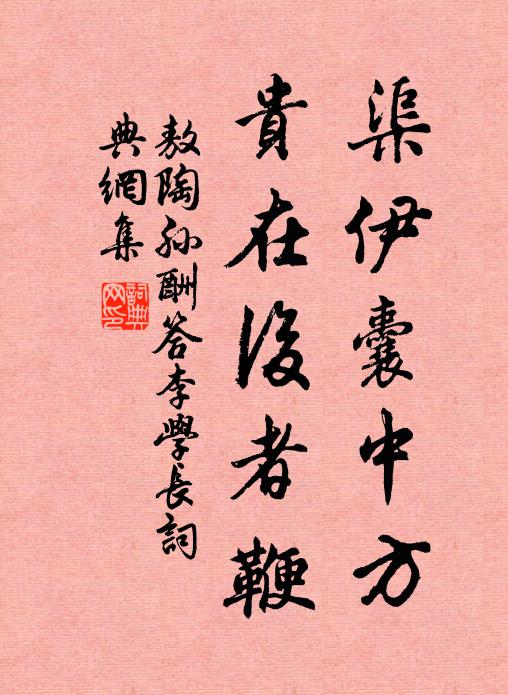 渠伊囊中方
貴在後者鞭
敖陶孙酬答李學長詞
典網集
詞典網印